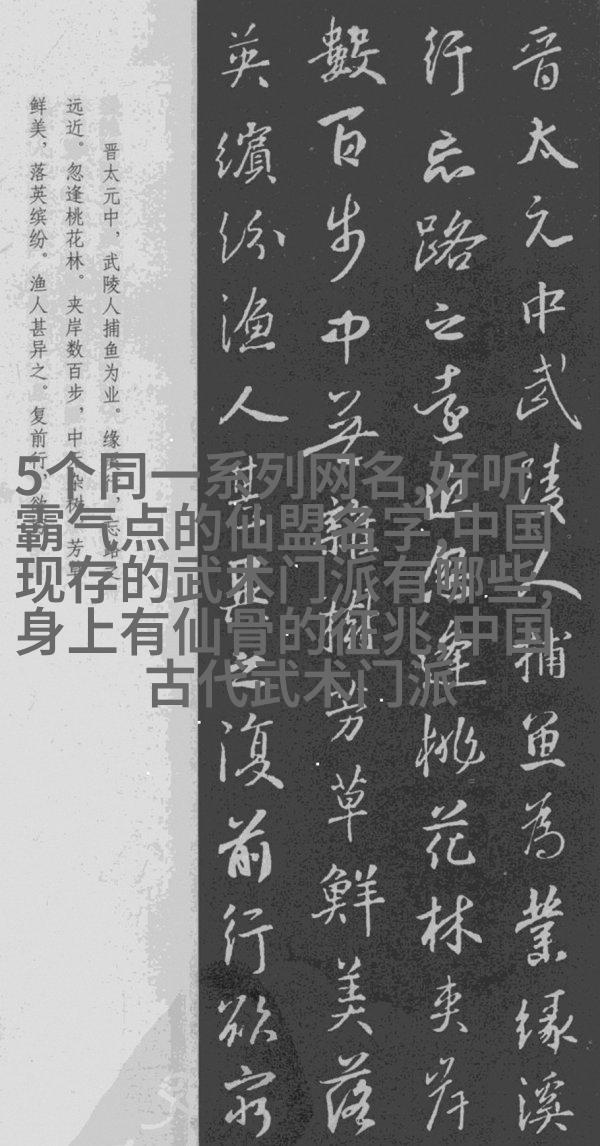 晋太元中武陵人捕魚為業緣溪
行忘路之遠近忽逢桃花林夾岸
數百步中無雜樹芳草鮮美落
英繽紛漁人甚異之復前行欲窮
晋太元中，武陵人捕鱼为业。缘溪行，忘路之
远近。忽逢桃花林。夹岸数百步，中无杂树，芳草
鲜美，落英缤纷。渔人甚异之。复前行，欲
5个同一系列网名,好听
霸气点的仙盟名字,中国
现存的武术门派有哪些,
身上有仙骨的征兆,中国
古代武术门派